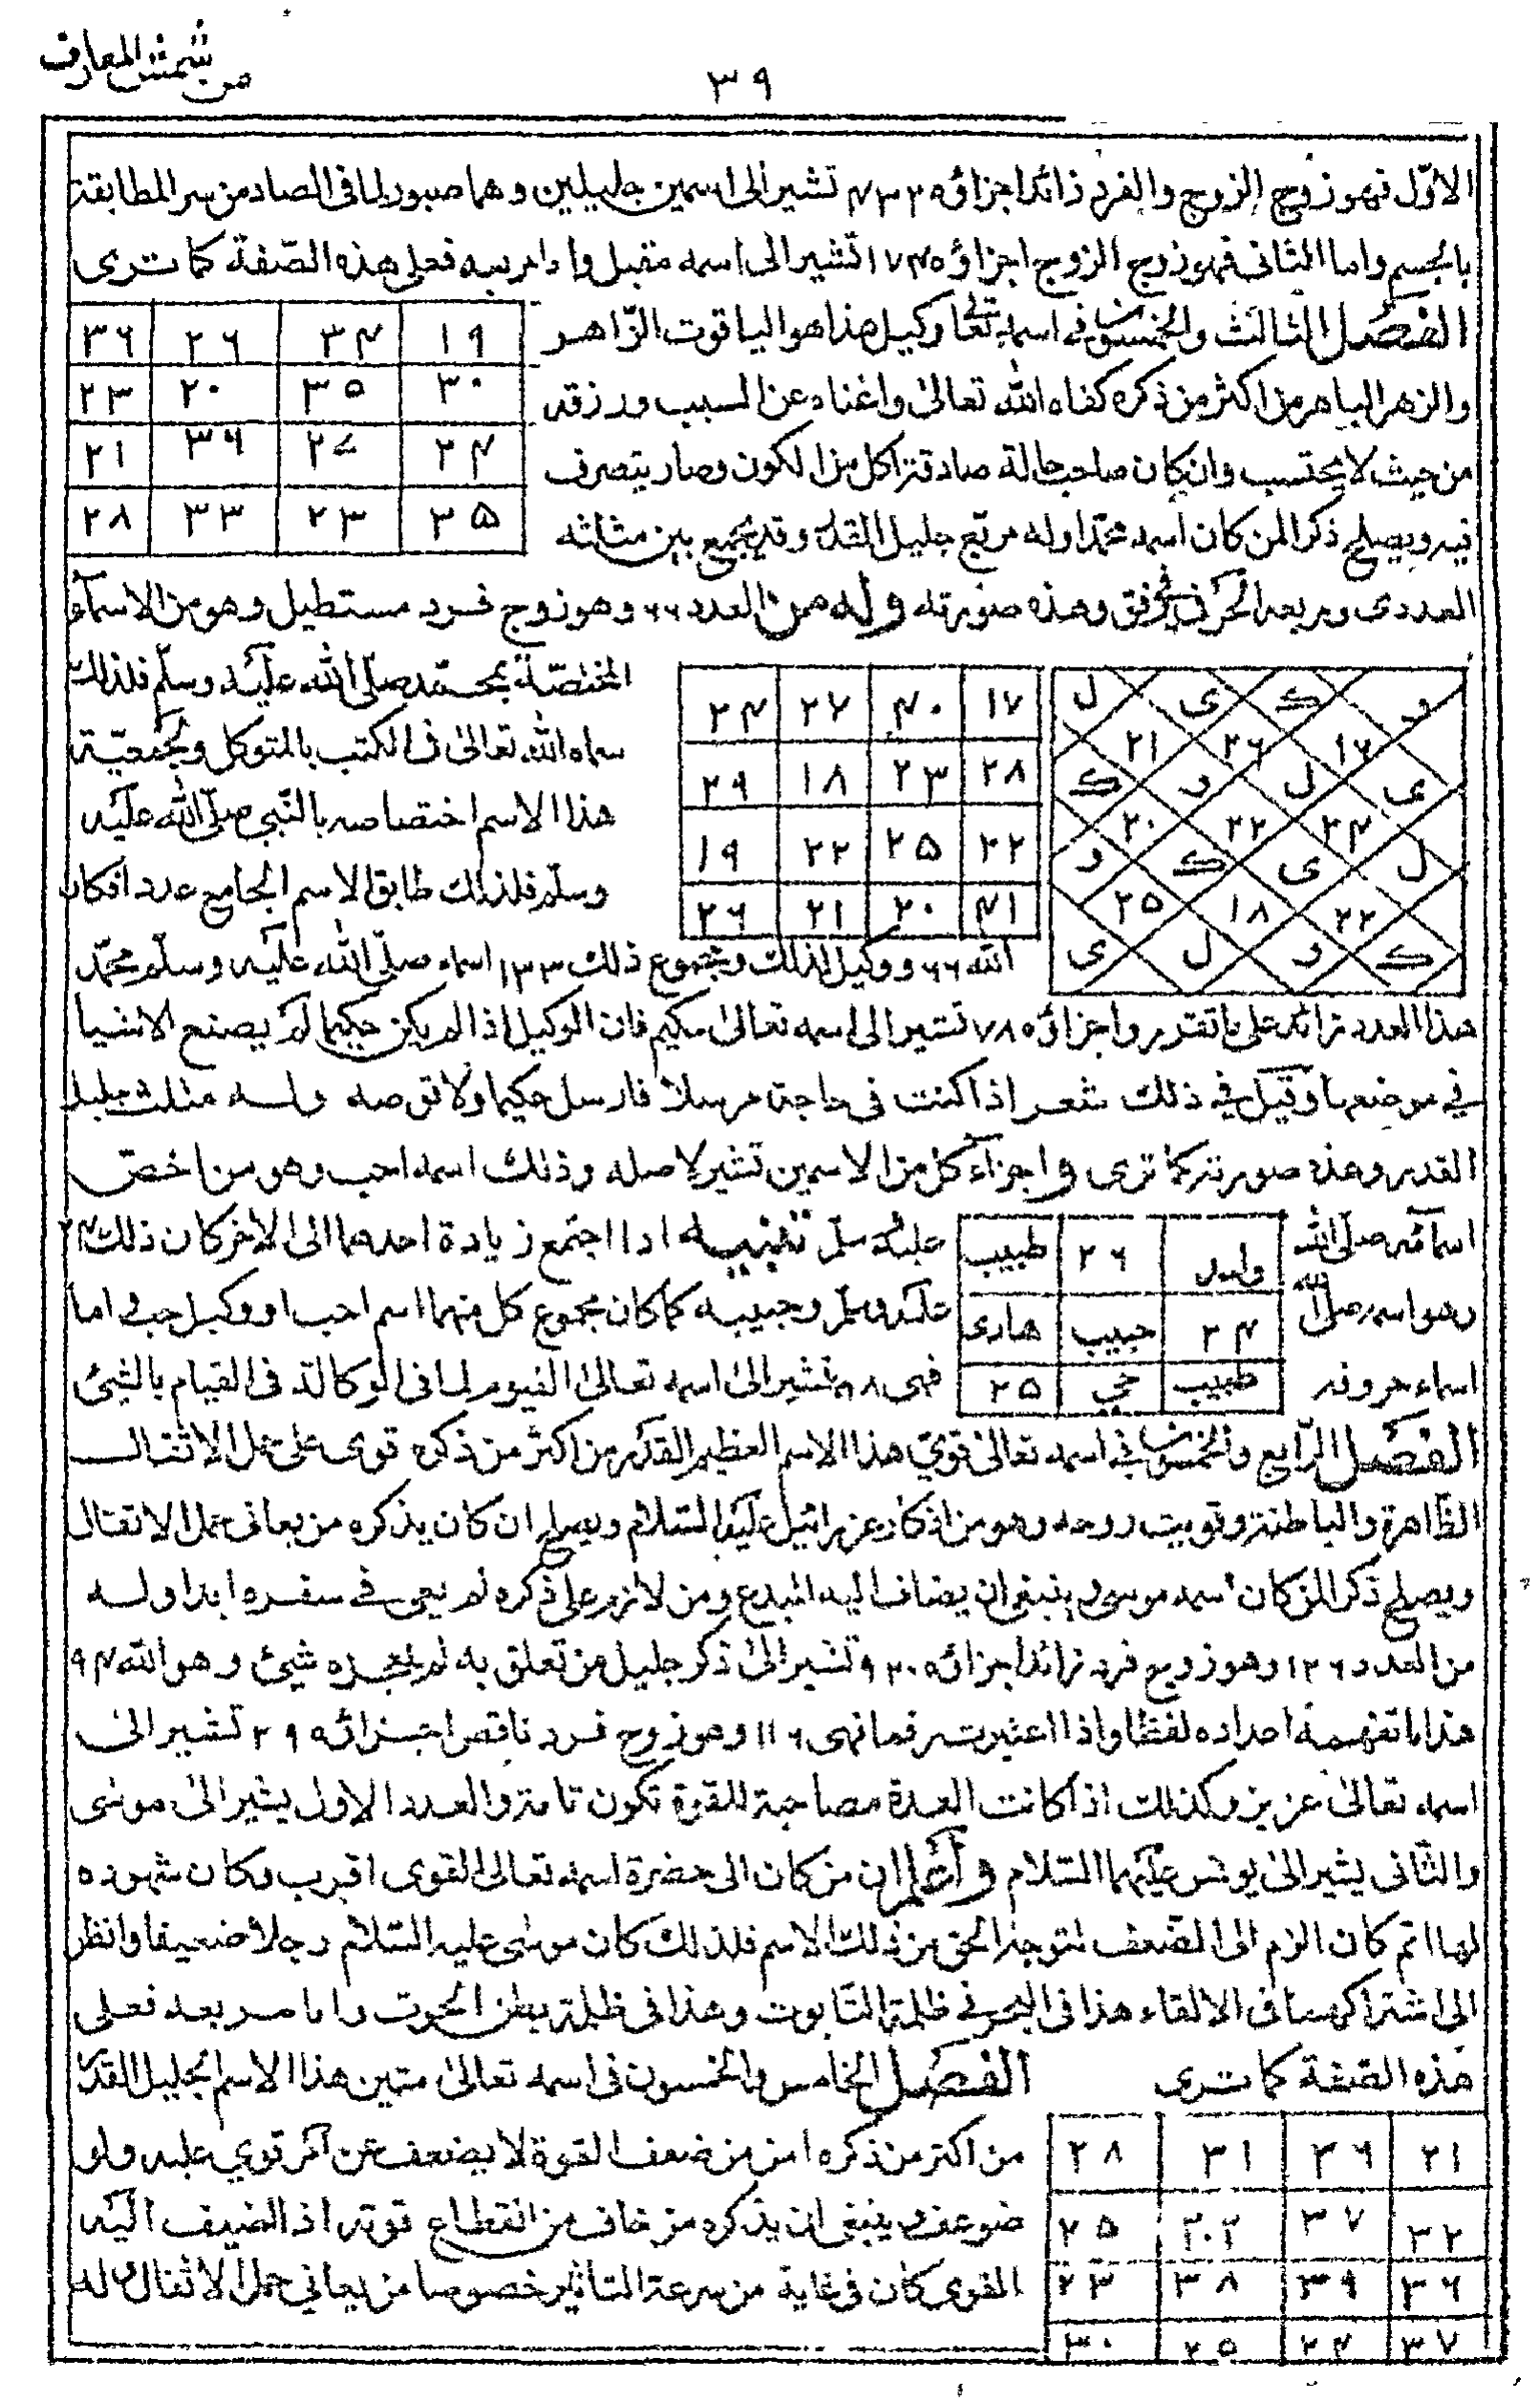 من شمش المعارف
٣٩
الاوّل فهو زوج الزوج والفرد زائد اجزاؤه ٣٣٤ تشير الى اسمين جليلين وهما صبور لما فى الصاد من سر المطابقة
بالجسم واما الثانى فهو زوج الزوج اجزاؤه ١٧٤ تشير الى اسمه مقبل واما مربعه فعلى هذه الصّفة كما ترى
الفصل الثالث والخمسون فى اسمه تعالى وكيل هذا هو الياقوت الزّاهر
والزهر الباهر من اكثر من ذكره كفاه الله تعالى واغناه عن السبب ورزقه
من حيث لا يحتسب وان كان صاحب حالة صادقة اكل من الكون وصار يتصرف
فيه ويصلح ذكرا لمن كان اسمه محمدا وله مربّع جليل القدر وقد يجمع بين مثلثه
٣٦ ٢٦ ٣٤ ١٩
٢٣ ٢٠ ٣٥ ٣٠
٢١ ٣٦ ٢٤
٢٨ ٣٣ ٢٣ ٣٥
العددى ومربعه الحرفى فى وفق وهذه صورته وله من العدد ٦٦ وهو زوج فرد مستطيل وهو من الاسماء
ل ى ك و
٢١ ٢٦ ١٧
ك و ل ى
٢٠ ٢٢ ٢٤
و ك ى ل
٢٥ ١٨ ٢٢
ى ل و ك
٢٤ ٢٧ ٤٠ ١٧
٢٩ ١٨ ٢٣ ٢٨
١٩ ٢٢ ٢٥ ٢٢
٢٦ ٢١ ٢٠ ٤١
المختصّة بمحمّد صلّى الله عليه وسلّم فلذلك
سماه الله تعالى فى الكتب بالمتوكل ولجمعيّة
هذا الاسم اختصاصه بالنّبى صلّى الله عليه
وسلّم فلذلك طابق الاسم الجامع عددا فكان
الله ٦٦ ووكيل كذلك ومجموع ذلك ١٣٣ اسماء صلّى الله عليه وسلّم محمّد
هذا العدد زائد على ما تقدم واجزاؤه ٧٨ تشير الى اسمه تعالى حكيم فان الوكيل اذا لم يكن حكيما لم يصنع الاشيا
في موضعها وقيل في ذلك شعر اذا كنت فى حاجة مرسلا فارسل حكيما ولا توصه وله مثلث جليل
القدر وهذه صورته كما ترى واجزاء كل من الاسمين تشير لاصله وذلك اسمه احب وهو من اخصّ
اسمائه صلّى الله عليه وسلم تنبيه اذا اجتمع زيادة احدهما الى الاخر كان ذلك
وهو اسمه صلى الله عليه وسلم وحبيبه كما كان مجموع كل منهما اسم احب او وكيل حب واما
اسماء حروفه فهى تشير الى اسمه تعالى القيوم لما فى الوكالة فى القيام بالشئ
طبيب ٢٦
هادى حبيب ٢٤
٢٥ طبيب
الفصل الرّابع والخمسون فى اسمه تعالى قوىّ هذا الاسم العظيم القدر من اكثر من ذكره قوى على حمل الاثقال
الظّاهرة والباطنة وقويت روحه وهو من اذكار عزرائيل عليه السّلام ويصلح ان كان يذكره من يعانى حمل الاثقال
ويصلح ذكرا لمن كان اسمه موسى وينبغى ان يضاف اليه المبدع ومن لازم على ذكره لم يعى فى سفره ابدا وله
من العدد ١٢٦ وهو زوج فرد زائد اجزائه وتشير الى ذكر جليل من تعلق به لم يعجزه شئ وهو الله
هذا ما تفهمه اعداده لفظا واذا اعتبرت رقما فهى ١١٦ وهو زوج فرد ناقص اجزائه ٩٤ تشير الى
اسمه تعالى عزيز وكذلك اذا كانت العدة مصاحبة للقوة تكون تامة والعدد الاول يشير الى موسى
والثّانى يشير الى يونس عليهما السّلام واعلم ان من كان الى حضرة اسمه تعالى القوى اقرب وكان شهوده
لها اتم كان الزم الى الضّعف لتوجد الحق من ذلك الاسم فلذلك كان موسى عليه السّلام رجلا ضعيفا وانظر
الى اشتراكهما فى الالقاء هذا فى البحر فى ظلمة التّابوت وهذا فى ظلمة بطن الحوت واما مربعه فعلى
هذه الصفة كما ترى
الفصل الخامس والخمسون فى اسمه تعالى متين هذا الاسم الجليل القدر
من اكثر من ذكره امن من ضعف القوة لا يضعف عن امر قوي عليه ولو
ضوعف وينبغى ان يذكره من خاف من انقطاع قوته اذا اضيف اليه
القوى كان فى غاية من سرعة التأثير خصوصا من يعانى حمل الاثقال وله
٢٨ ٣١ ٣٦ ٢١
٢٥ ٣٧ ٣٢
٢٣ ٣٨ ٣٩ ٣٦
٣٠ ٢٥ ٢٤ ٣٧